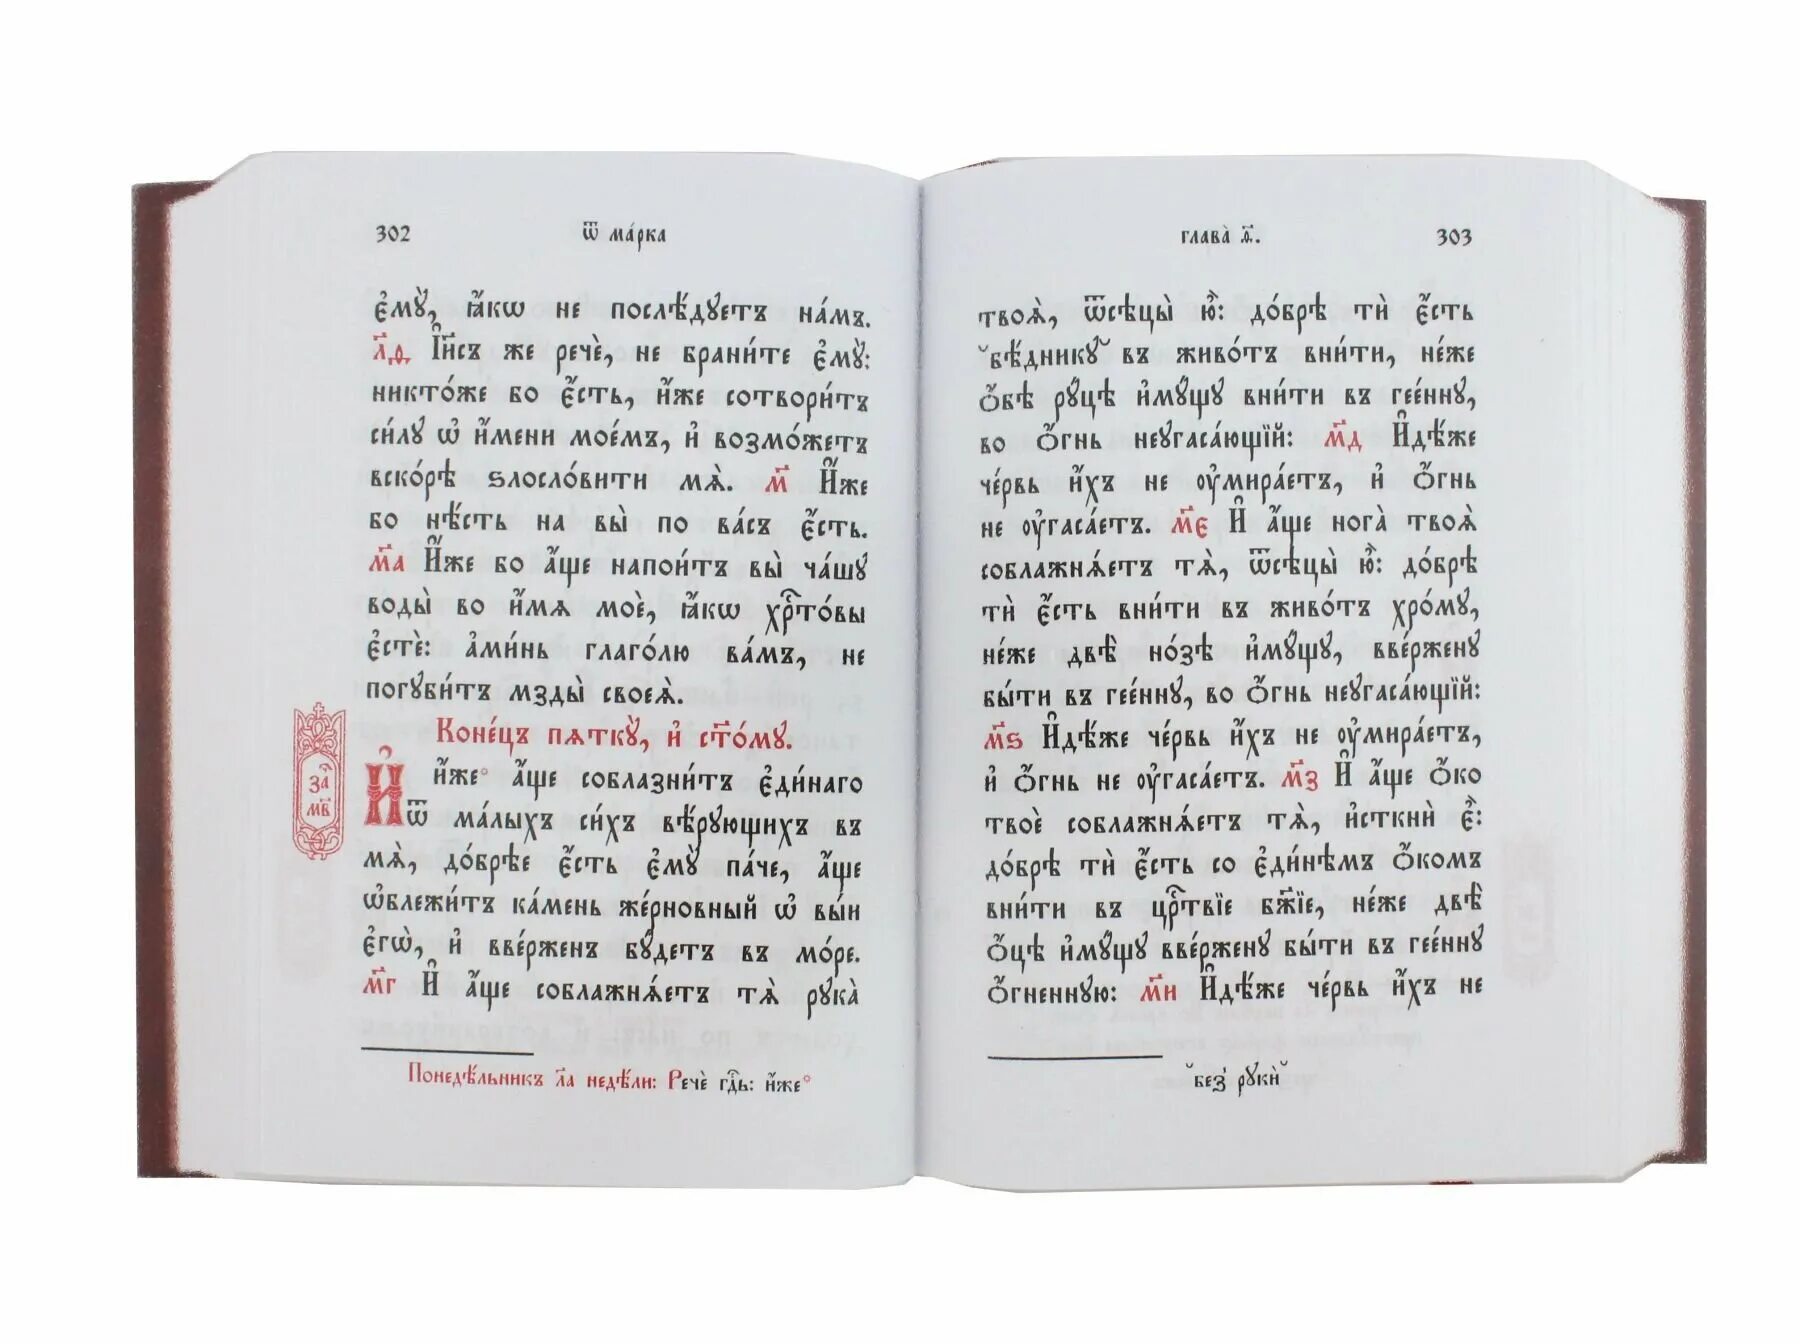 302 Ѿ ма́рка
є҆мꙋ̀, ꙗ҆́кѡ не послѣ́дꙋетъ на́мъ.
л҃ѳ І҆и҃съ же речѐ, не брани́те є҆мꙋ̀:
никто́же бо є҆́сть, и҆́же сотвори́тъ
си́лꙋ ѡ҆ и҆́мени мое́мъ, и҆ возмо́жетъ
вско́рѣ ѕлосло́вити мѧ̀. м҃ И҆́же
бо нѣ́сть на вы̀ по ва́съ є҆́сть.
м҃а И҆́же бо а҆́ще напои́тъ вы̀ ча́шꙋ
воды̀ во и҆́мѧ моѐ, ꙗ҆́кѡ хрⷭ҇то́вы
є҆стѐ: а҆ми́нь глаго́лю ва́мъ, не
погꙋби́тъ мзды̀ своеѧ̀.
Коне́цъ пѧткꙋ̀, и҆ ст҃о́мꙋ.
за҃ м҃в
И҆ и҆́же* а҆́ще соблазни́тъ є҆ди́наго
ѿ ма́лыхъ си́хъ вѣ́рꙋющихъ въ
мѧ̀, до́брѣе є҆́сть є҆мꙋ̀ па́че, а҆́ще
ѡ҆блежи́тъ ка́мень же́рновный ѡ҆ вы́и
є҆гѡ̀, и҆ вве́рженъ бꙋ́детъ въ мо́ре.
м҃г И҆ а҆́ще соблажнѧ́етъ тѧ̀ рꙋка̀
Понедѣ́льникъ л҃а недѣ́ли: Речѐ гдⷭ҇ь: и҆́же*
глава̀ ѳ҃. 303
твоѧ̀, ѿсѣцы̀ ю҆̀: добрѣ́ ти є҆́сть
˘бѣ́дникꙋ˘ въ живо́тъ вни́ти, не́же
ѻ҆́бѣ рꙋ́цѣ и҆мꙋ́щꙋ вни́ти въ гее́ннꙋ,
во ѻ҆́гнь неꙋгаса́ющїй: м҃д И҆дѣ́же
че́рвь и҆́хъ не ᲂу҆мира́етъ, и҆ ѻ҆́гнь
не ᲂу҆гаса́етъ. м҃є И҆ а҆́ще нога̀ твоѧ̀
соблажнѧ́етъ тѧ̀, ѿсѣцы̀ ю҆̀: добрѣ́
ти̑ є҆́сть вни́ти въ живо́тъ хро́мꙋ,
не́же двѣ̀ но́зѣ и҆мꙋ́щꙋ, вве́рженꙋ
бы́ти въ гее́ннꙋ, во ѻ҆́гнь неꙋгаса́ющїй:
м҃ѕ И҆дѣ́же че́рвь и҆́хъ не ᲂу҆мира́етъ,
и҆ ѻ҆́гнь не ᲂу҆гаса́етъ. м҃з И҆ а҆́ще ѻ҆́ко
твоѐ соблажнѧ́етъ тѧ̀, и҆сткнѝ є҆̀:
добрѣ́ ти є҆́сть со є҆ди́нѣмъ ѻ҆́комъ
вни́ти въ црⷭ҇твїе бж҃їе, не́же двѣ̀
ѻ҆́цѣ и҆мꙋ́щꙋ вве́рженꙋ бы́ти въ гее́ннꙋ
ѻ҆́гненнꙋю: м҃и И҆дѣ́же че́рвь и҆́хъ не
˘без̾ рꙋкѝ˘